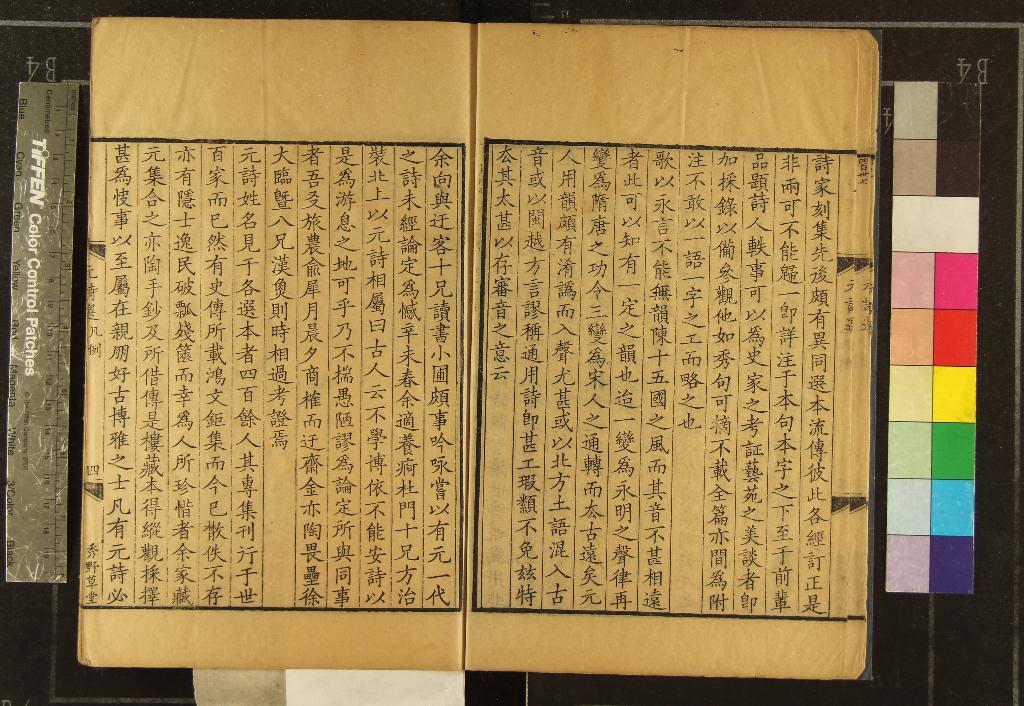 詩家刻集先後頗有異同選本流傳彼此各經訂正是
非兩可不能歸一卽詳注于本句本字之下至于前輩
品題詩人軼事可以為史家之考証藝苑之美談者卽
加採錄以備參觀他如秀句可摘不載全篇亦間為附
注不敢以一語一字之工而略之也
歌以永言不能無韻陳十五國之風而其音不甚相遠
者此可以知有一定之韻也迨一變為永明之聲律再
變為隋唐之功令三變為宋人之通轉而太古遠矣元
人用韻頗有淆譌而入聲尤甚或以北方土語混入古
音或以閩越方言謬稱通用詩卽甚工瑕纇不免玆特
厺其太甚以存審音之意云
余向與迂客十兄讀書小圃頗事吟咏嘗以有元一代
之詩未經論定為憾辛未春余適養疴杜門十兄方治
裝北上以元詩相屬曰古人云不學博依不能安詩以
是為游息之地可乎乃不揣愚陋謬為論定所與同事
者吾友旅農俞犀月晨夕商榷而迂齋金亦陶畏壘徐
大臨曁八兄漢魚則時相過考證焉
元詩姓名見于各選本者四百餘人其專集刊行于世
百家而已然有史傳所載鴻文鉅集而今已散佚不存
亦有隱士逸民破瓢殘篋而幸為人所珍惜者余家藏
元集合之亦陶手鈔及所借傳是樓藏本得縱觀採擇
甚為快事以至屬在親朋好古博雅之士凡有元詩必
元詩選凡例
四
秀野草堂
TIFFEN Color Control Patches
Centimetres
Inches
Blue
Cyan
Green
Yellow
Red
Magenta
White
3/Color
Black
B4
B4